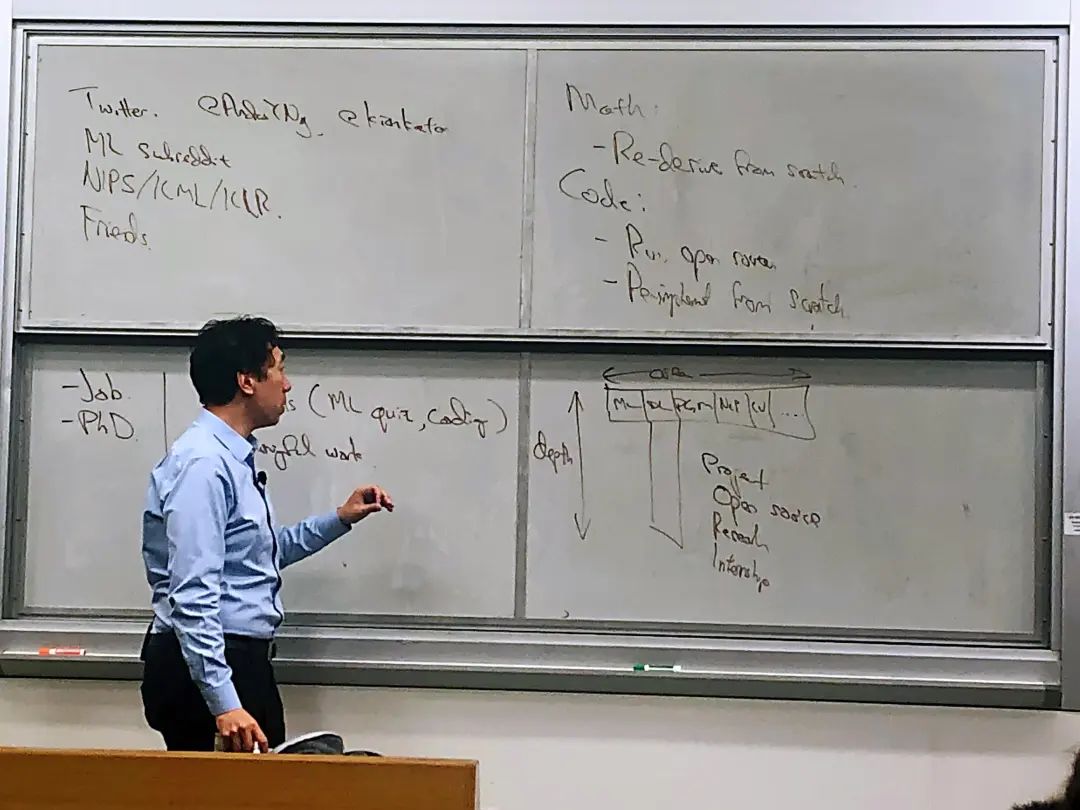 Twitter. @AndrewYNg, @kiankatan
ML subreddit
NIPS/ICML/ICLR.
Friends.
Math:
- Re-derive from scratch.
Code:
- Run open source
- Reimplement from scratch.
- Job.
- PhD.
(ML quiz, coding)
work
area
ML DL PGM NLP CV ...
depth
Project
Open source
Research
Internship